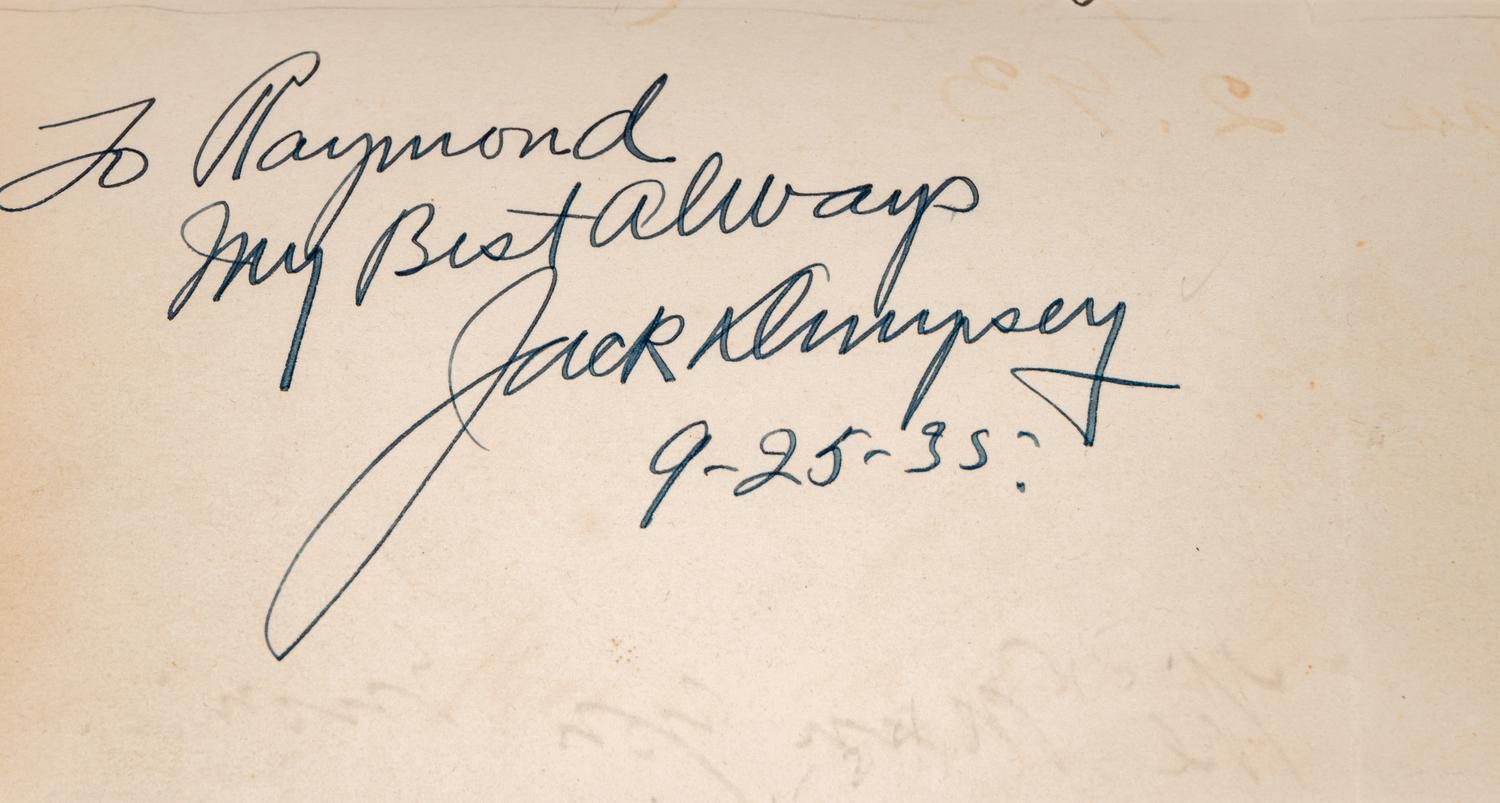 To Raymond
My Best Always
Jack Dempsey
9-25-35: